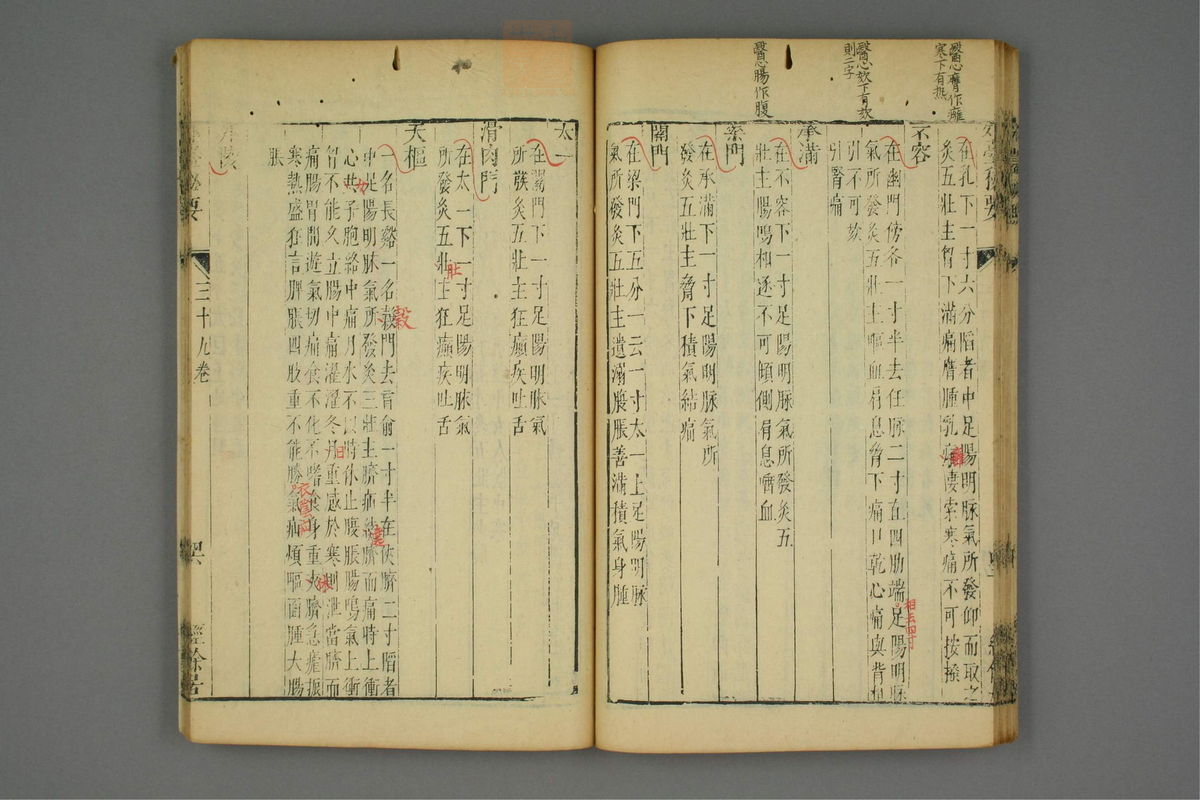 醫心膺作雍
寒下有熱
醫心欬下有欬
則二字
醫心腸作腹
在乳下一寸六分陷者中足陽明脉氣所發仰而取之
灸五壯主胷下滿痛膺腫乳癕淒索寒痛不可按搔
癰
不容
在幽門傍各一寸半去任脉二寸直四肋端足陽明脉
相去四寸
氣所發灸五壯主嘔血肩息脅下痛口乾心痛與背相
引不可欬
引腎痛
承滿
在不容下一寸足陽明脉氣所發灸五
壯主腸鳴相逐不可傾倒肩息唾血
梁門
在承滿下一寸足陽明脉氣所
發灸五壯主脅下積氣結痛
關門
在梁門下五分一云一寸太一上足陽明脉
氣所發灸五壯主遺溺膜脹善滿積氣身腫
太一
在關門下一寸足陽明脉氣
所發灸五壯主狂癲疾吐舌
滑肉門
在太一下一寸足陽明脉氣
所發灸五壯主狂癲疾吐舌
天樞
一名長谿一名穀門去肓俞一寸半在俠臍二寸陷者
穀
中足陽明脉氣所發灸三壯主臍疝繞臍而痛時上衝
心女子胞絡中痛月水不以時休止腹脹腸鳴氣上衝
胷不能久立腸中痛濯濯冬日重感於寒則泄當臍而
痛腸胃間遊氣切痛食不化不嗜食身重夾臍急瘧振
俠
寒熱盛狂言胛脹四肢重不能勝氣疝煩嘔面腫大腸
脹
外臺秘要
三十九卷
經餘居